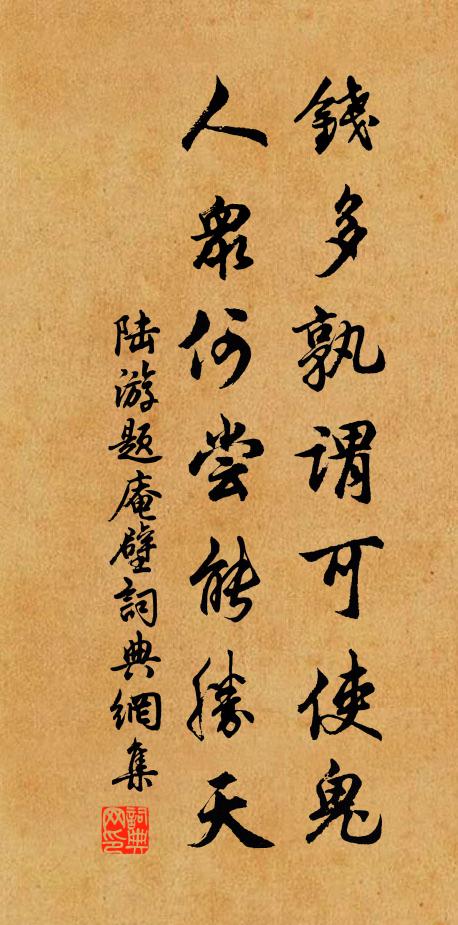 錢多孰謂可使鬼
人衆何尝能勝天
陆游题庵壁詞典網集
詞典网印